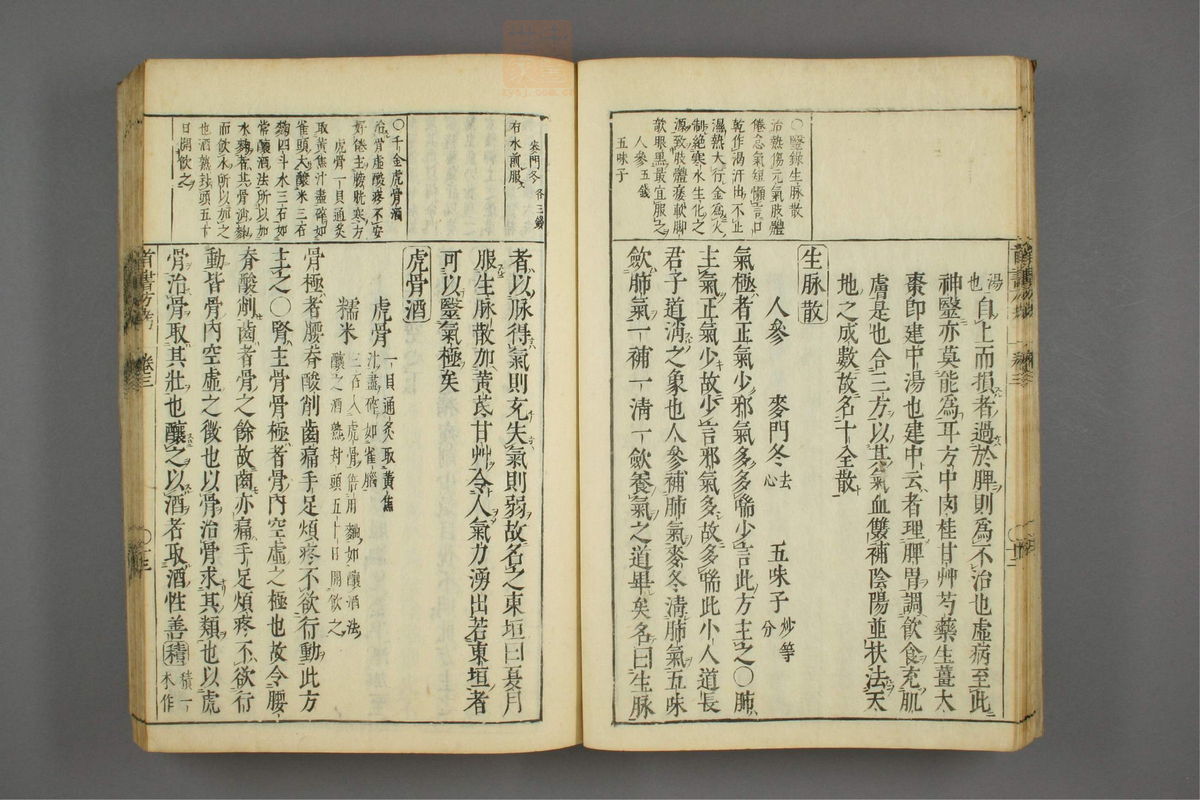 〇醫錄生脉散
治熱傷元氣肢體
倦怠氣短懶言口
乾作渴汗出不止
濕熱大行金爲火
制絕寒水生化之
源致肢體痿軟脚
欹眼黑最宜服之
人參五錢
五味子
湯也自上而損者過於脾則爲不治也虛病至此
神醫亦莫能爲耳方中肉桂甘艸芍藥生薑大
棗卽建中湯也建中云者理脾胃調飮食充肌
膚是也合三方以其氣血雙補陰陽並扶法天
地之成數故名十全散
生脉散
人參 麥門冬去心 五味子炒等分
氣極者正氣少邪氣多多喘少言此方主之〇肺
主氣正氣少故少言邪氣多故多喘此小人道長
君子道消之象也人參補肺氣麥冬淸肺氣五味
斂肺氣一補一淸一斂養氣之道畢矣名曰生脉
麥門冬各三錢
右水煎服
〇千金虎骨酒
治骨虛酸疼不安
好倦主膀胱寒方
虎骨一具通炙
取黃焦汁盡碎如
雀頭大釀米三石
麴四斗水三石如
常釀酒法所以加
水麴者其骨消麴
而飮水所以加之
也酒熟封頭五十
日開飮之
者以脉得氣則充失氣則弱故名之東垣曰夏月
服生脉散加黃芪甘艸令人氣力湧出若東垣者
可以醫氣極矣
虎骨酒
虎骨一具通炙取黃焦汁盡碎如雀腦
糯米三石入虎骨倍用麴如釀酒法釀之酒熟封頭五十日開飮之
骨極者腰脊酸削齒痛手足煩疼不欲行動此方
主之〇腎主骨骨極者骨內空虛之極也故令腰
脊酸削齒者骨之餘故齒亦痛手足煩疼不欲行
動皆骨內空虛之徵也以骨治骨求其類也以虎
骨治骨取其壯也釀之以酒者取酒性善積積一本作
首書方考 卷三 〇十三